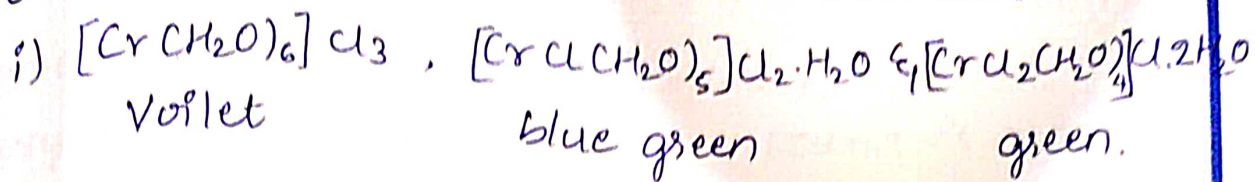 i) [Cr(H₂O)₆]Cl₃ , [CrCl(H₂O)₅]Cl₂.H₂O & [CrCl₂(H₂O)₄]Cl.2H₂O
Voilet blue green green.